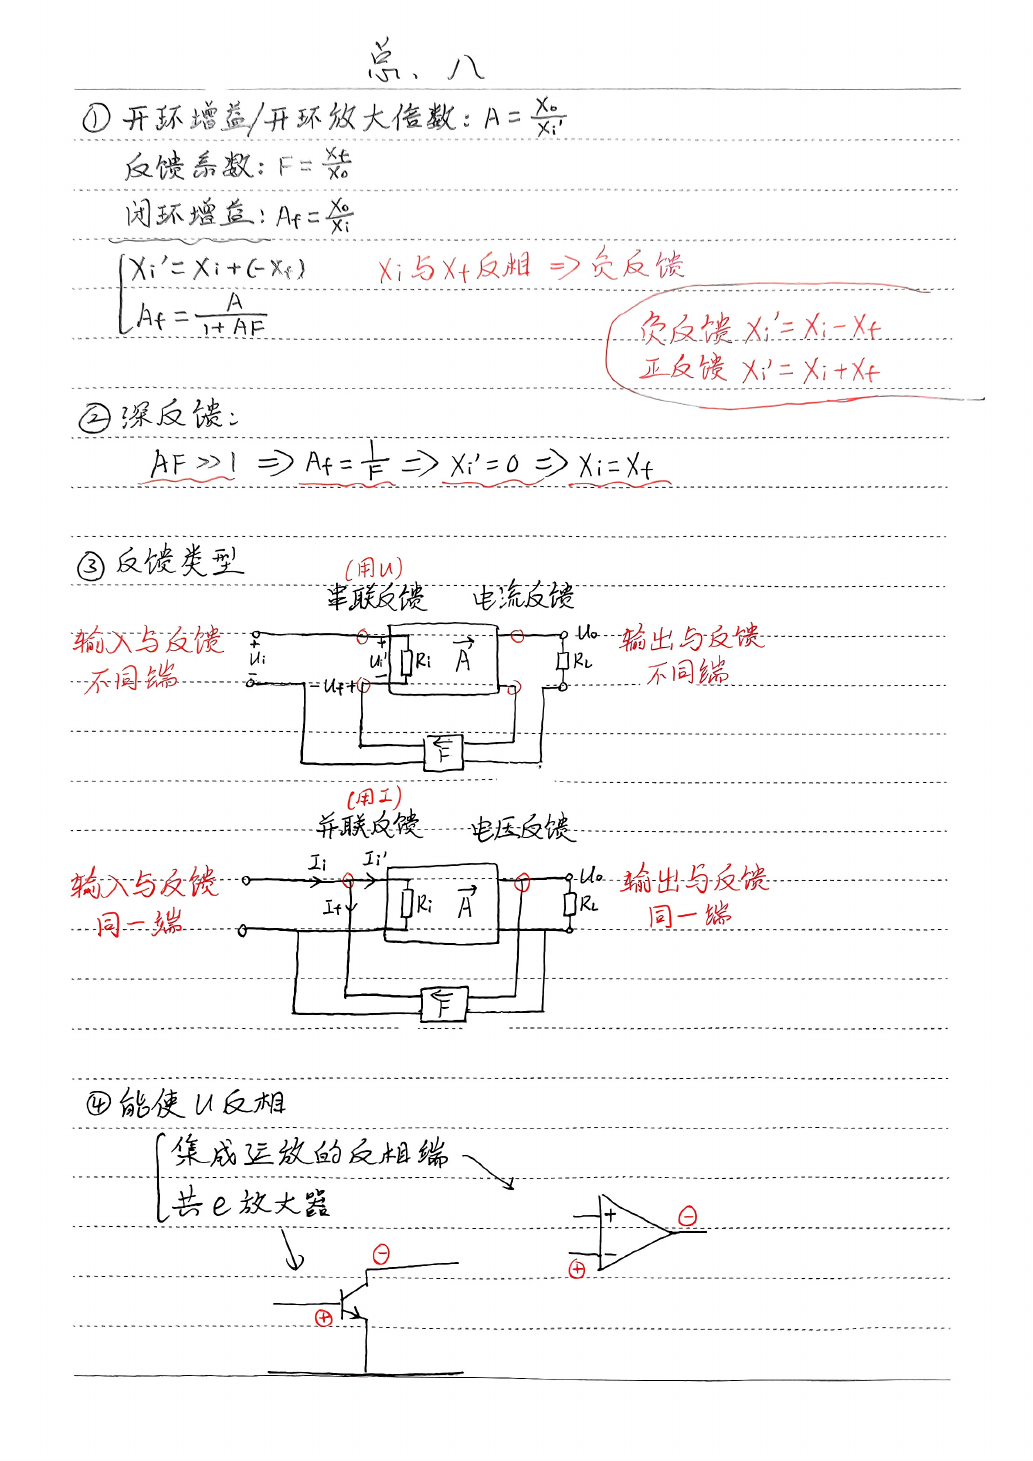 总、八
① 开环增益/开环放大倍数: A = Xo/Xi'
反馈系数: F = Xf/Xo
闭环增益: Af = Xo/Xi
Xi' = Xi + (-Xf) Xi与Xf反相 => 负反馈
Af = A/(1+AF)
负反馈 Xi' = Xi - Xf
正反馈 Xi' = Xi + Xf
② 深反馈:
AF >> 1 => Af = 1/F => Xi' = 0 => Xi = Xf
③ 反馈类型
(用U)
串联反馈 电流反馈
输入与反馈
不同端
+ Ui -
+ Ui' -
Ri
A
- Uf +
F
Uo
RL
输出与反馈
不同端
(用I)
并联反馈 电压反馈
输入与反馈
同一端
Ii Ii'
If
Ri
A
F
Uo
RL
输出与反馈
同一端
④ 能使U反相
集成运放的反相端
共e放大器
+ ⊖
⊕ -
⊖
⊕